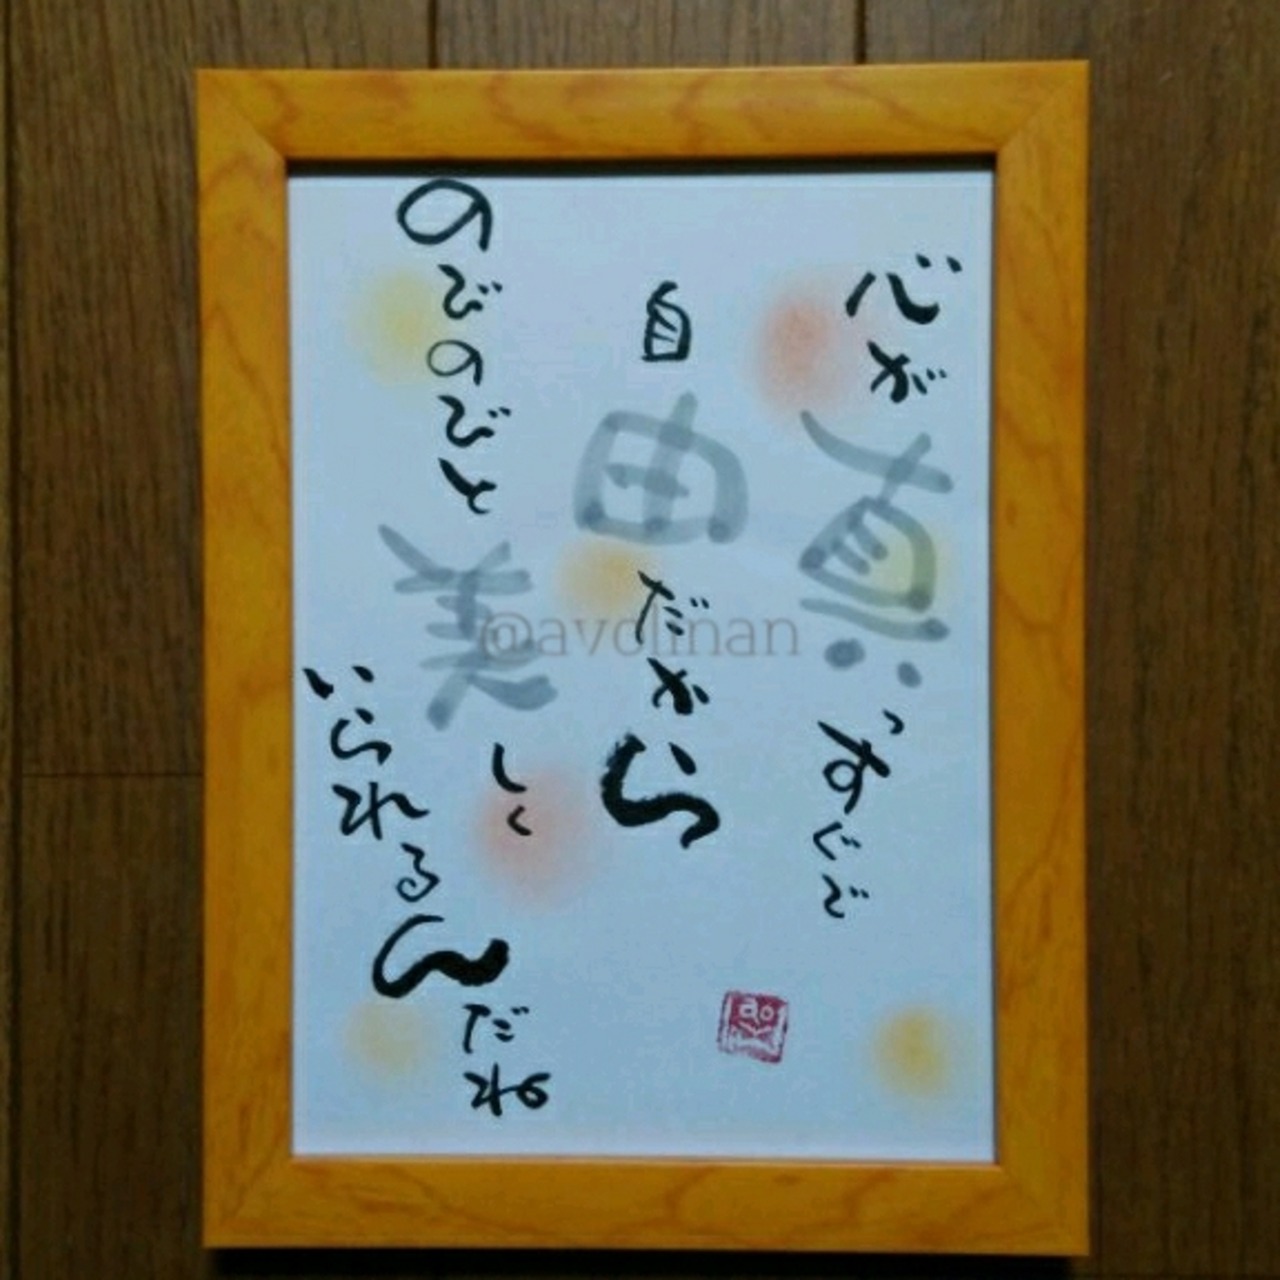 心が真っすぐで
自由だから
のびのびと
美しく
いられるんだね
ao
@avolman